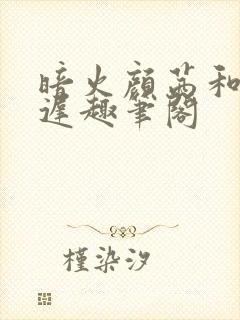 暗火顾茜和
迟趣笔阁
槿染汐